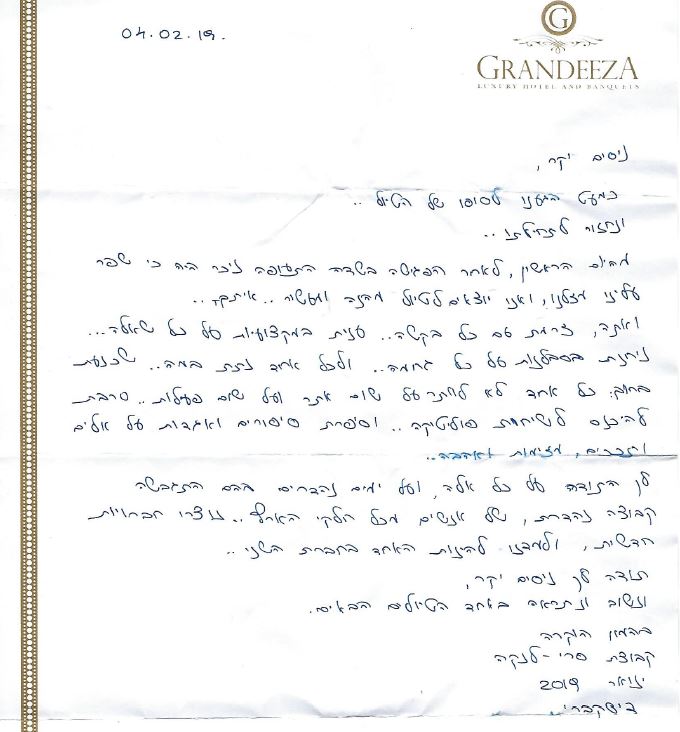 04.02.19.
G
GRANDEEZA
LUXURY HOTEL AND BANQUETS
ניסים יקר,
כמעט הגענו לסופו של הטיול ..
ונחזור לתחילתו ..
מהיום הראשון, לאחר הפגישה בשדה התעופה ניכר היה כי שפר
עלינו מזלנו, ואנו יוצאים לטיול מהנה ומעשיר .. איתך ..
ואתה, זרמת עם כל בקשה .. ענית במקצועיות על כל שאלה...
ניחנת בסבלנות על כל .. ולכל אחד נתת במה .. שכנעת
כל אחד לא לוותר על שום אתר ועל שום פעילות .. סרבת
להיכנס לשיחות פוליטיקה .. וסיפרת סיפורים ואגדות על אלים
מזימות ואהבה ..
לך התודה על כל אלה, ועל ימים נהדרים בהם התגבשה
קבוצה נהדרת, של אנשים מכל חלקי הארץ .. נוצרו חברויות
חדשות, ולמדנו להינות האחד בחברת השני ..
תודה לך ניסים יקר,
ונשוב ונתראה באחד הטיולים הבאים.
בהמון הוקרה
קבוצת סרי-לנקה
ינואר 2019